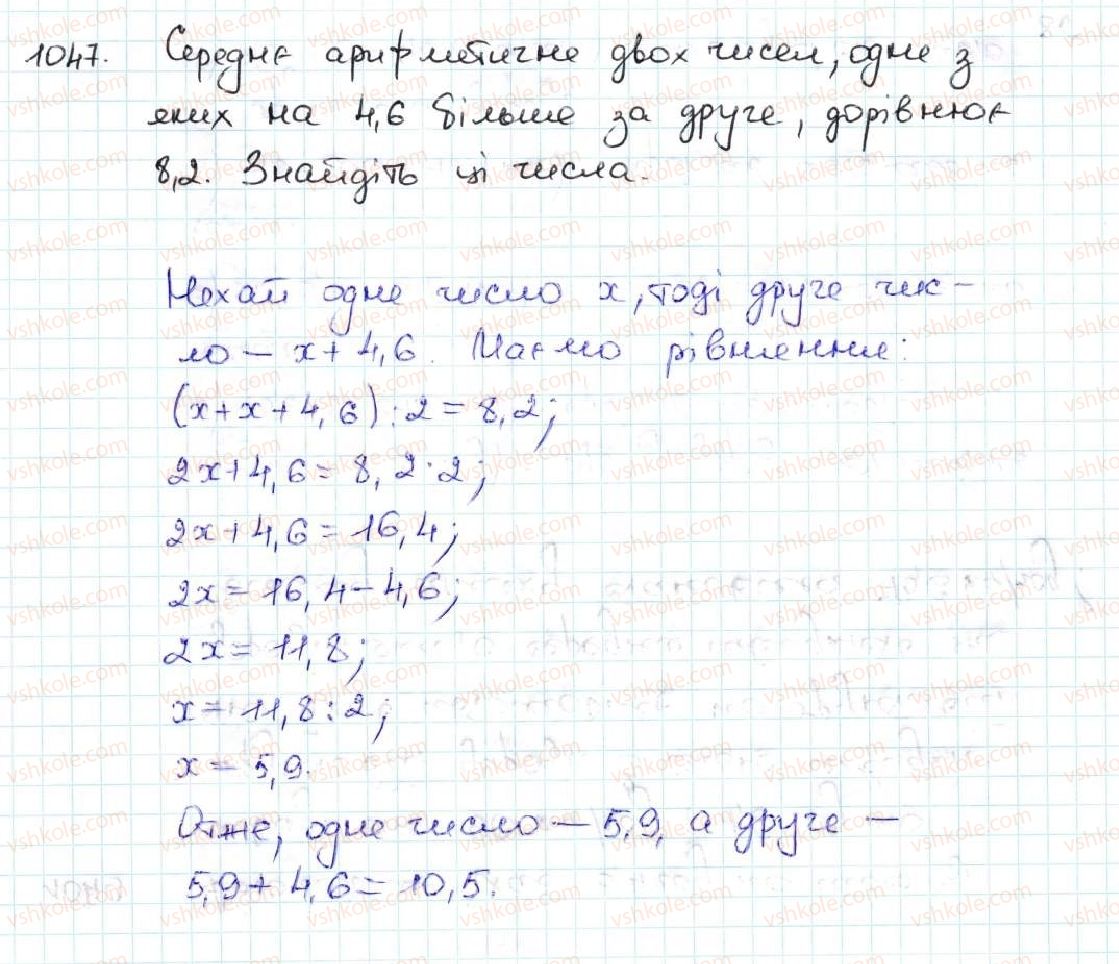 1047. Середнє арифметичне двох чисел, одне з
яких на 4,6 більше за друге, дорівнює
8,2. Знайдіть ці числа.
Нехай одне число x, тоді друге чис-
ло – x + 4,6. Маємо рівняння:
(x + x + 4,6) : 2 = 8,2;
2x + 4,6 = 8,2 · 2;
2x + 4,6 = 16,4;
2x = 16,4 – 4,6;
2x = 11,8;
x = 11,8 : 2;
x = 5,9.
Отже, одне число – 5,9, а друге –
5,9 + 4,6 = 10,5.
vshkole.com